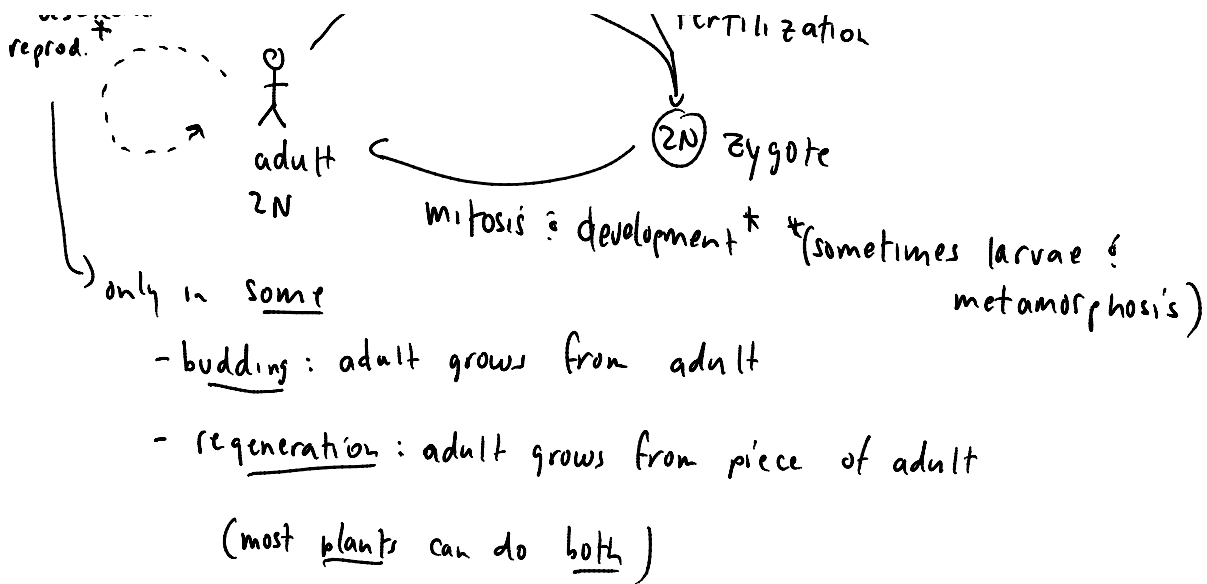 reprod.*
fertilization
2N zygote
adult
2N
mitosis & development* *(sometimes larvae &
metamorphosis)
only in some
- budding: adult grows from adult
- regeneration: adult grows from piece of adult
(most plants can do both)